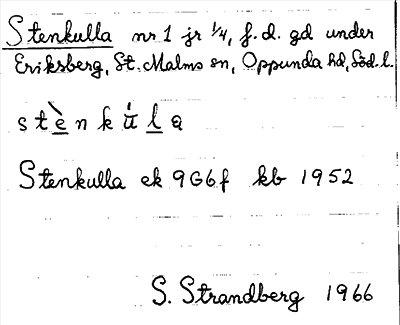 Stenkulla nr 1 jr 1/4, f. d. gd under
Eriksberg, St. Malms sn, Oppunda hd, Söd. l.
stènkúla
Stenkulla ek 9G6f kb 1952
S. Strandberg 1966